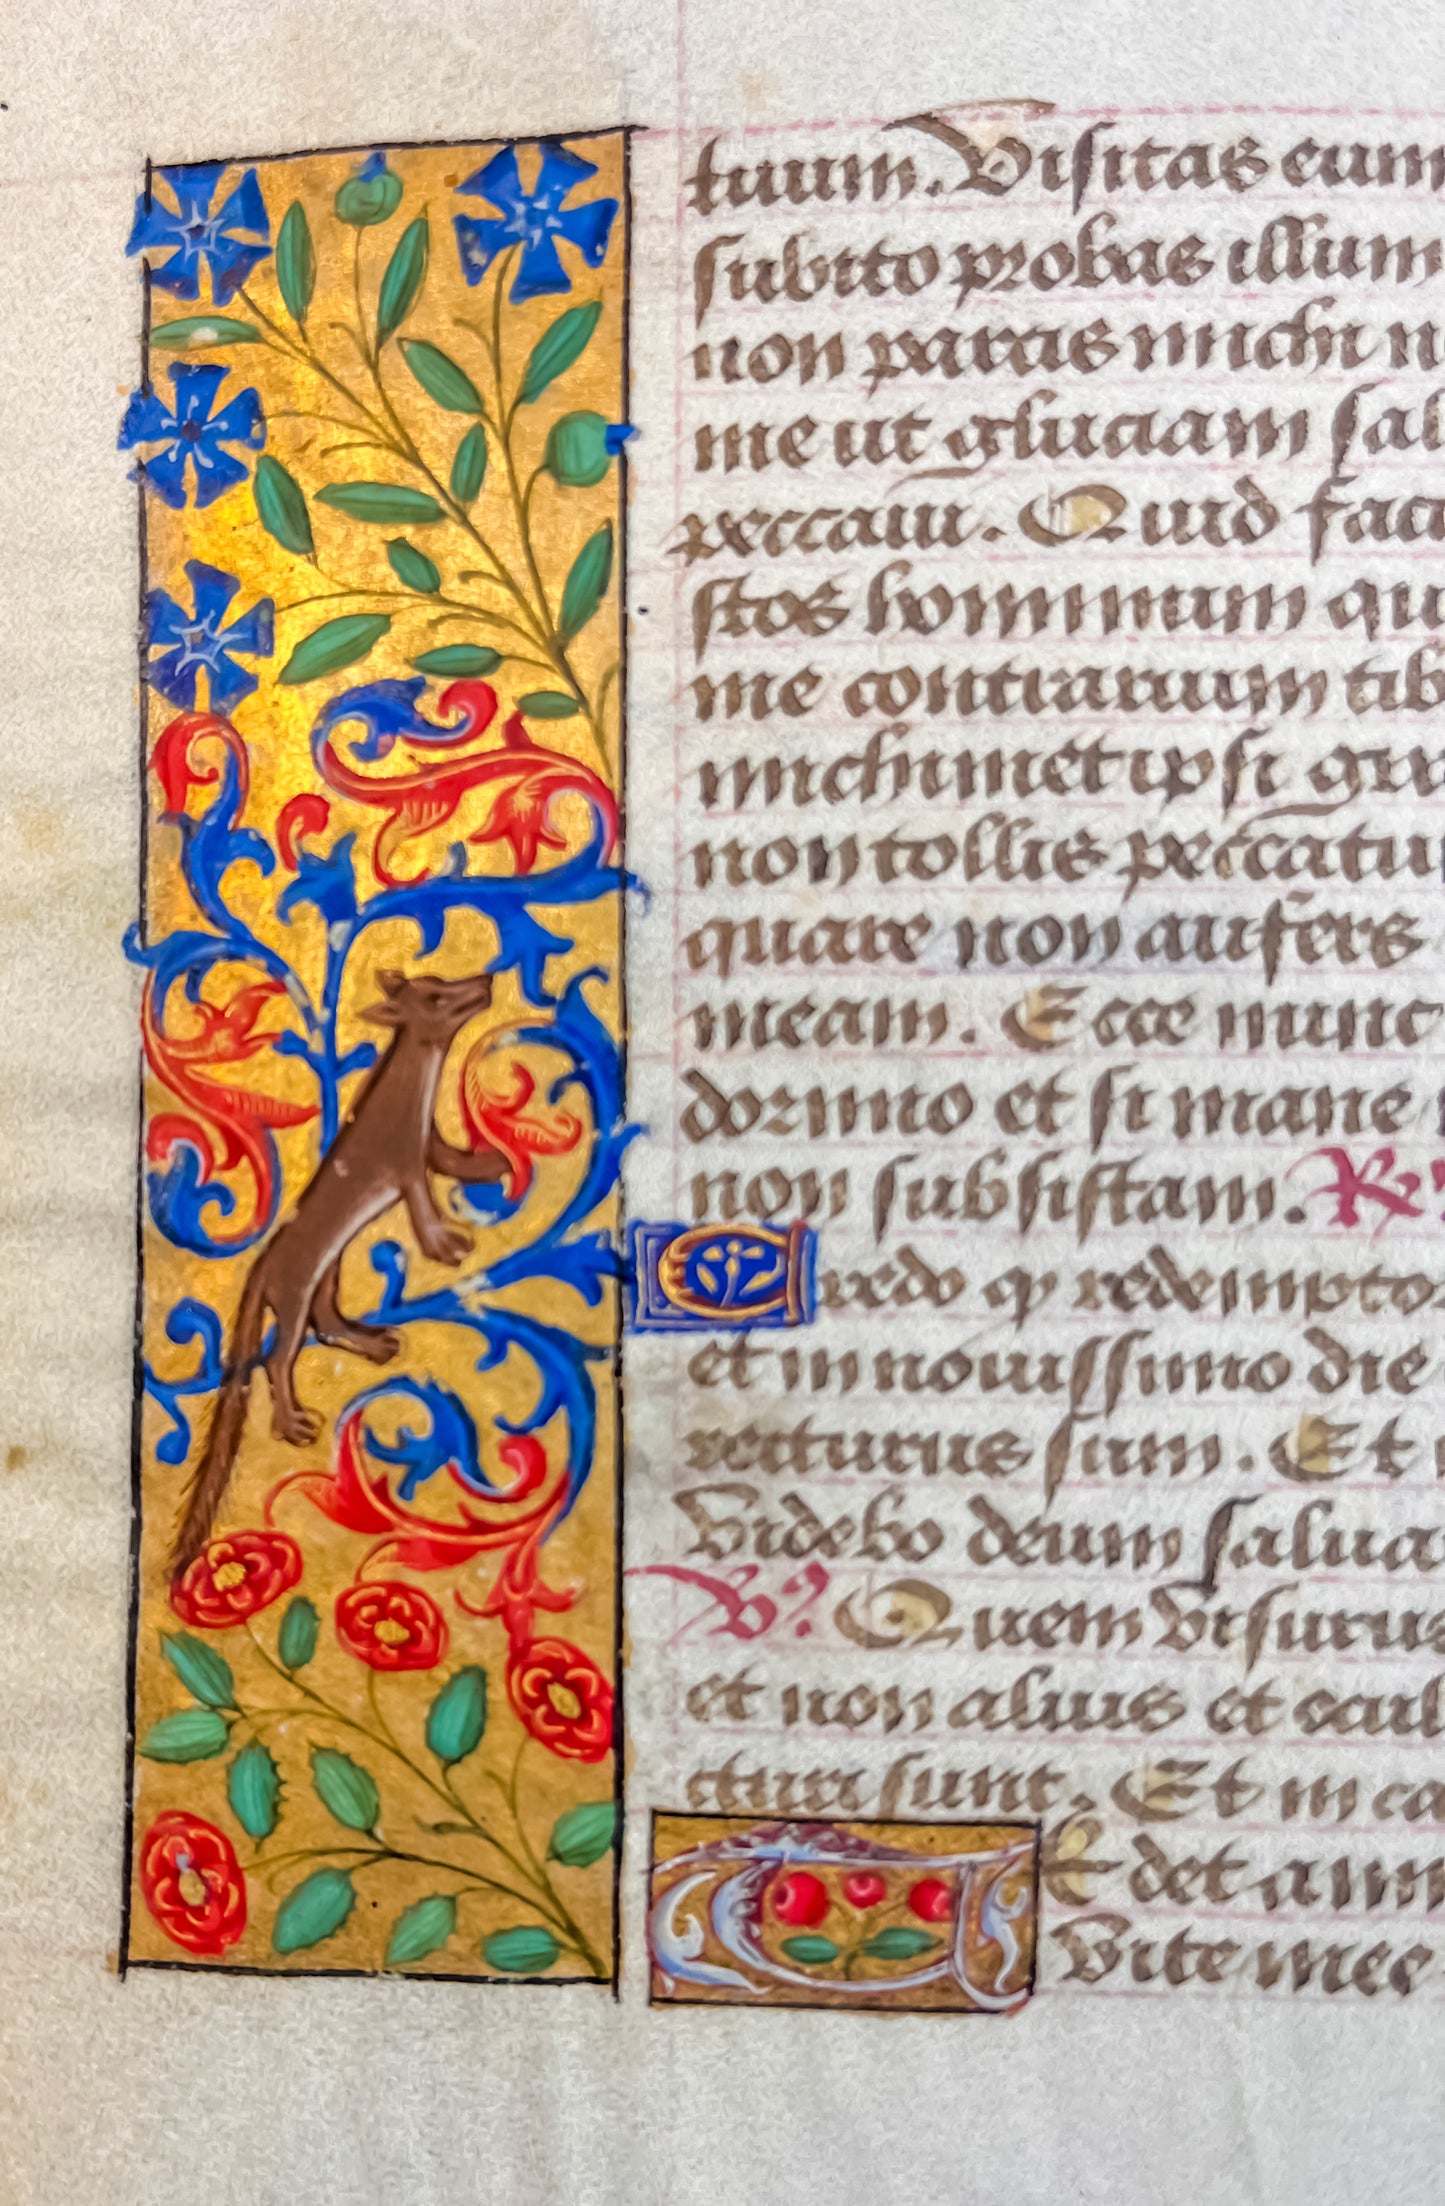 tuum. Visitas eum
subito probas illum
non parcis michi n
me ut gluciam sal
peccaui. Quid faci
stos hominum qu
me contrarium tib
michimetipsi gra
non tollis peccatu
quare non aufers
meam. Ecce nunc
dormio et si mane
non subsistam. R
Credo q redempto
et in nouissimo die
recturus sum. Et
videbo deum salua
V Quem visurus
et non alius et ocul
cturi sunt. Et in ca
Tedet anim
vite mee